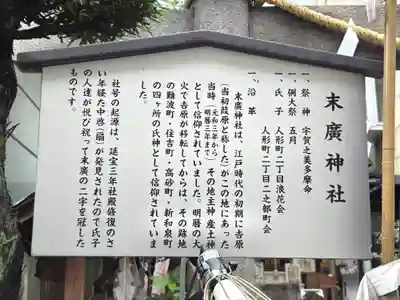 末廣神社
一、祭神 宇賀之美多麻命
一、例大祭 五月
一、氏子 人形町二丁目浪花会
人形町二丁目二之部町会
一、沿革
末廣神社は、江戸時代の初期に𠮷原
（当初葭原と称した）がこの地にあった
当時（元和三年から明暦三年まで）その地主神産土神
として信仰されてました。明暦の大
火で𠮷原が移転してからは、その跡地
の難波町・住吉町・高砂町・新和泉町
の四ヶ所の氏神として信仰されていま
した。
社号の起源は、延宝三年社殿修復のさ
い年経た中啓（扇）が発見されたので氏子
の人達が悦び祝って末廣の二字を冠した
ものです。